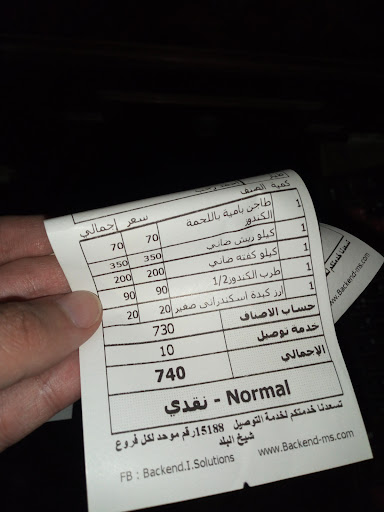 كمية الصنف سعر إجمالي
1 طاجن بامية باللحمة 70 70
الكندوز
1 كيلو ريش ضاني 350 350
1 كيلو كفته ضاني 200 200
1 طرب الكندوز1/2 90 90
1 ارز كبدة اسكندراني صغير 20 20
حساب الاصناف 730
خدمة توصيل 10
الإجمالي 740
Normal - نقدي
تسعدنا خدمتكم لخدمة التوصيل 15188رقم موحد لكل فروع
شيخ البلد
FB : Backend.I.Solutions www.Backend-ms.com
تسعدنا خدمتكم
www.Backend-ms.com